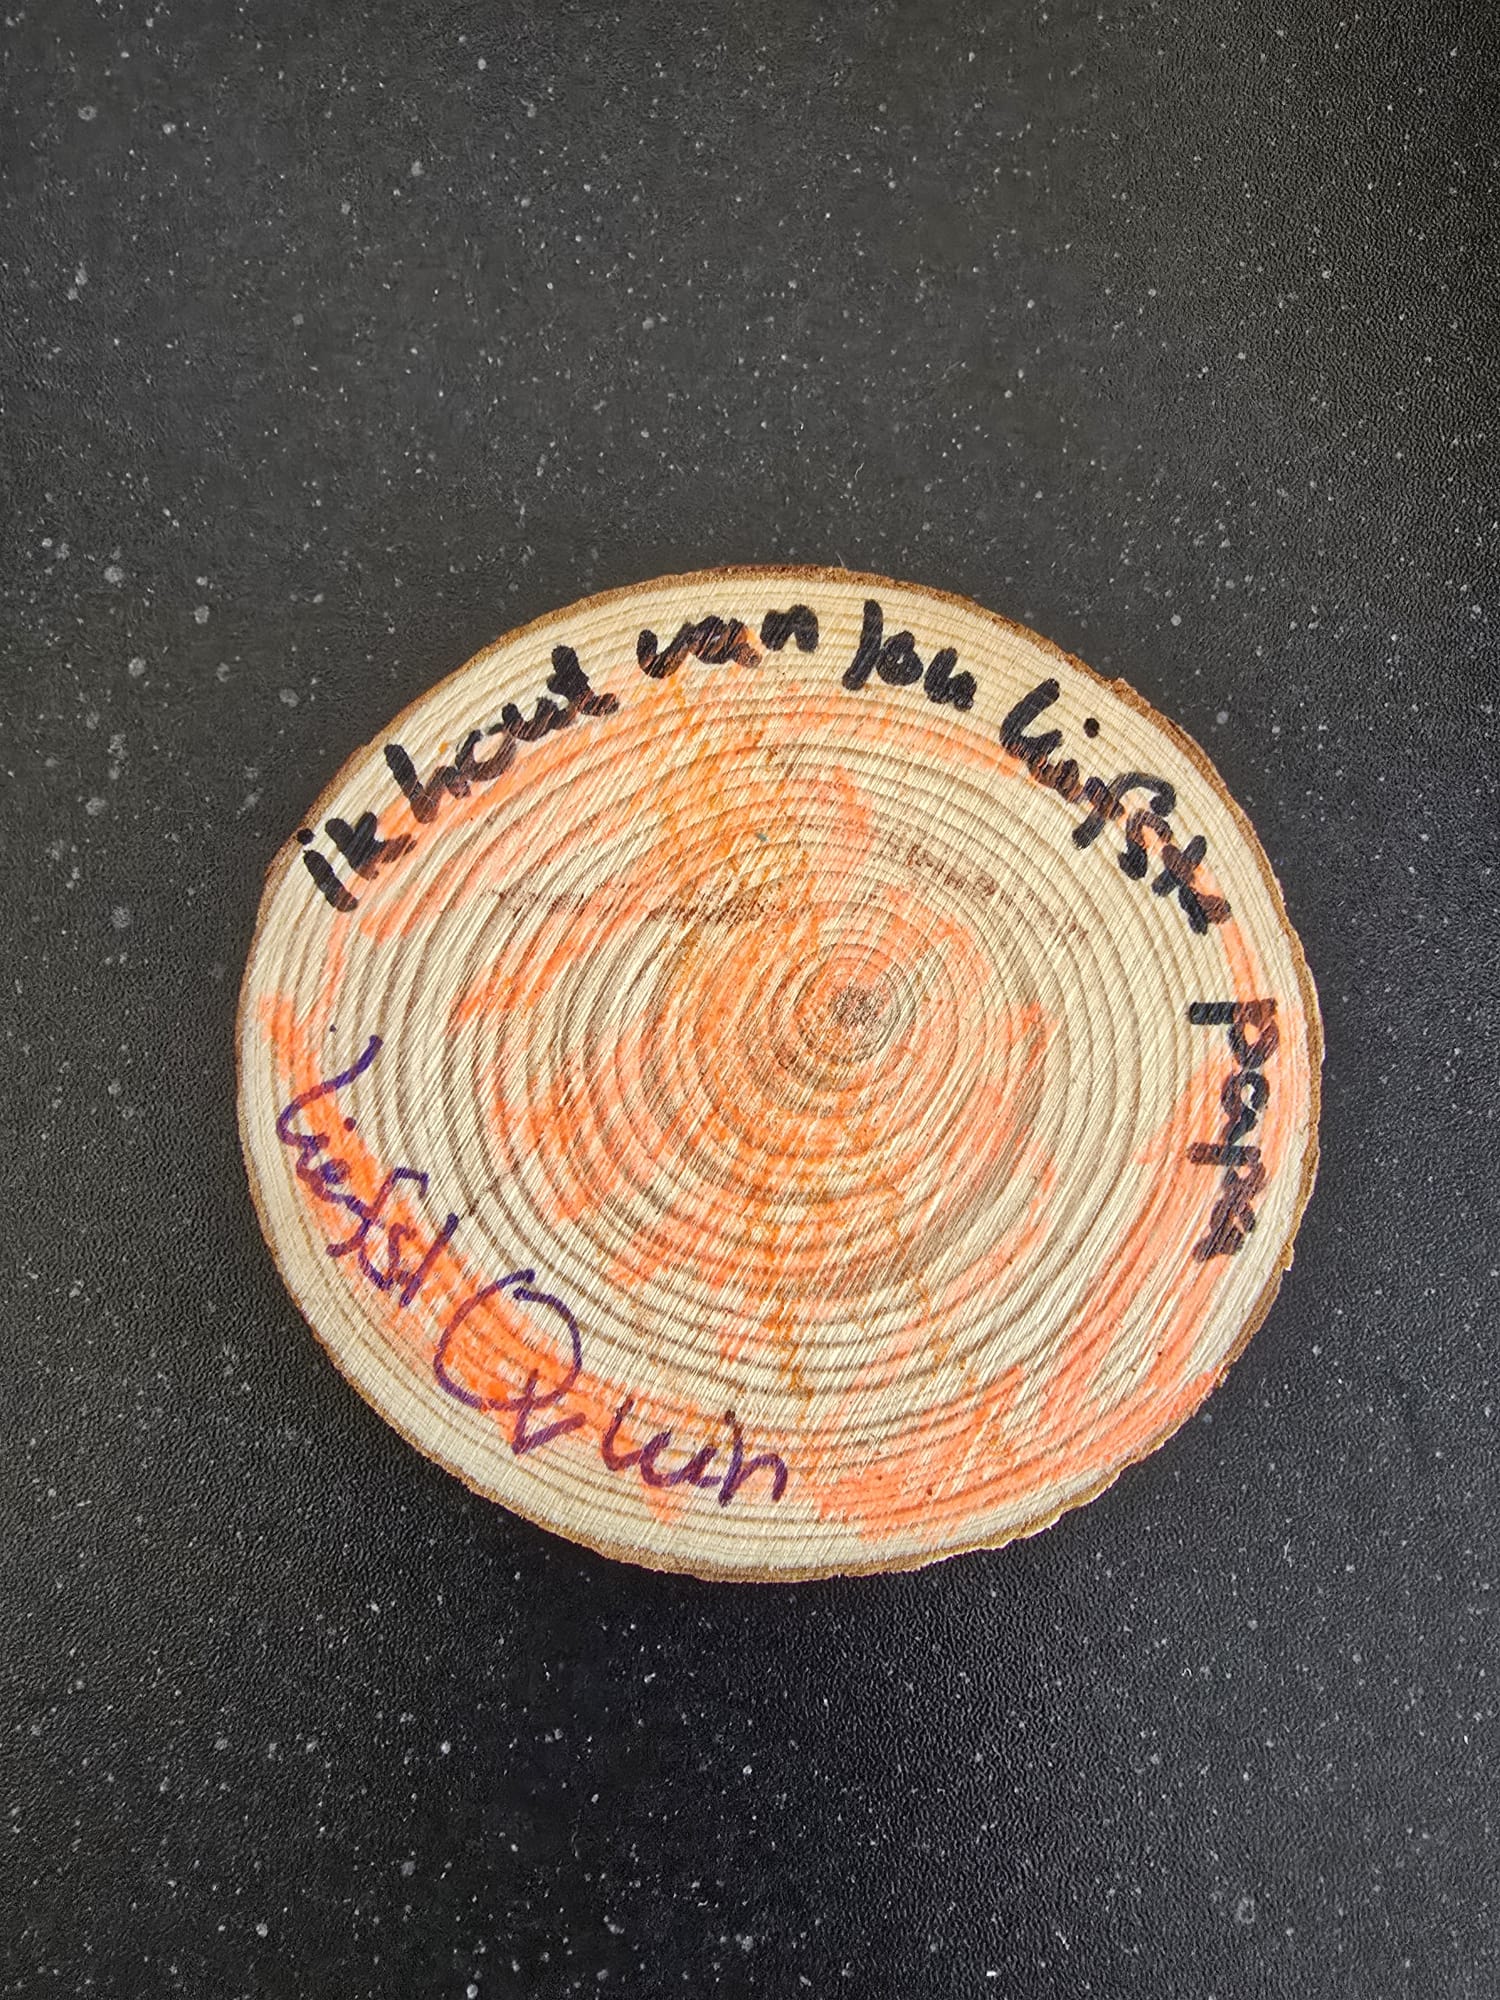 ik hout van jou liefste papa
liefst Quin